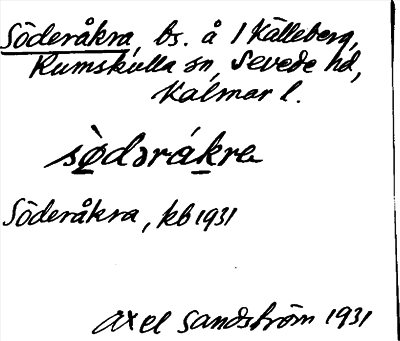 Söderåkra, bs. å 1 Källeberg,
Rumskulla sn, Sevede hd,
Kalmar l.
sò̤dəráḵra
Söderåkra, kb 1931
Axel Sandström 1931